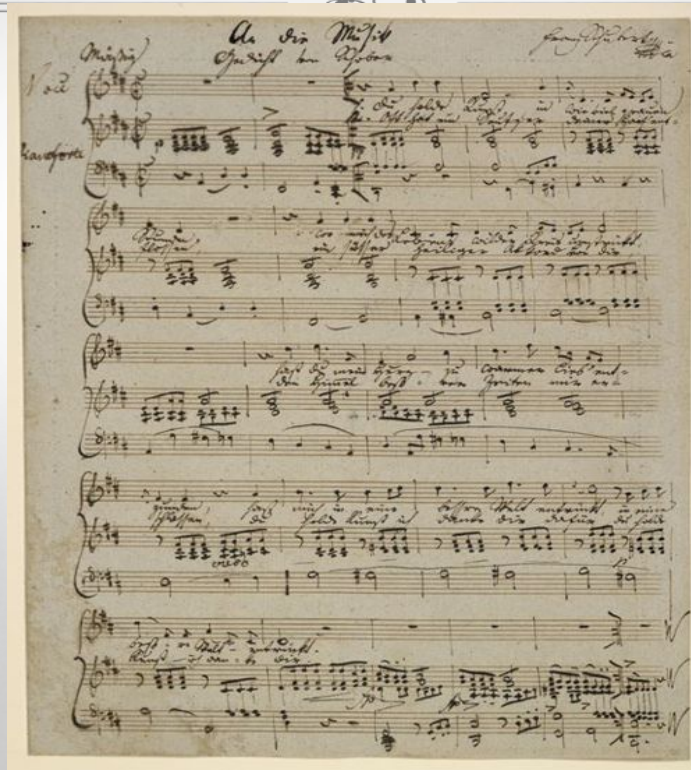 An die Musik
Franz Schubert
Mäßig Gedicht von Schober
Pianoforte
Du holde Kunst in wieviel grauen
Oft hat ein Seufzer deiner Harf ent-
Stunden, wo mich des Lebens wilder Kreis umstrickt
flossen, ein süsser heiliger Akkord von dir
hast du mein Herz zu warmer Lieb ent-
den Himmel bess-rer Zeiten mir er-
zunden, hast mich in eine bessre Welt entrückt, in eine
schlossen, du holde Kunst ich danke dir dafür du holde
cresc
bess-re Welt entrückt.
Kunst ich dan-ke dir